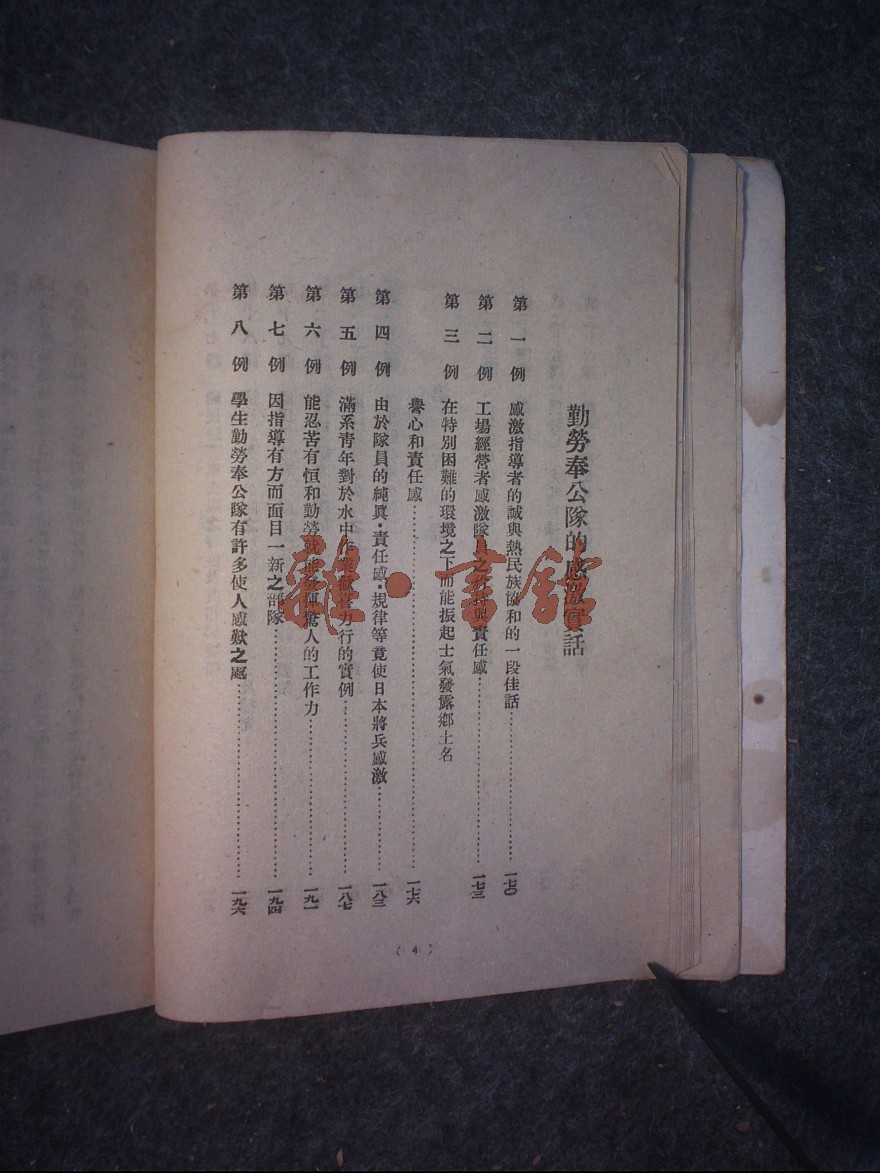 勤勞奉公隊的感激實話
第一例 感激指導者的誠與熱民族協和的一段佳話……一七〇
第二例 工場經營者感激隊員之 持與責任感……一七三
第三例 在特別困難的環境之下而能振起士氣發露鄉土名
譽心和責任感……一七六
第四例 由於隊員的純眞・責任感・規律等竟使日本將兵感激……一八三
第五例 滿系青年對於水中作 力行的實例……一八七
第六例 能忍苦有恒和勤勞就能發揮驚人的工作力……一九一
第七例 因指導有方而面目一新之部隊……一九四
第八例 學生勤勞奉公隊有許多使人感歎之處……一九六
(4)
雜・書館